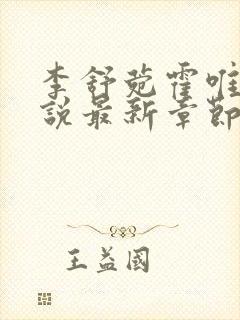 李舒菀霍唯
說最新章節
王益國